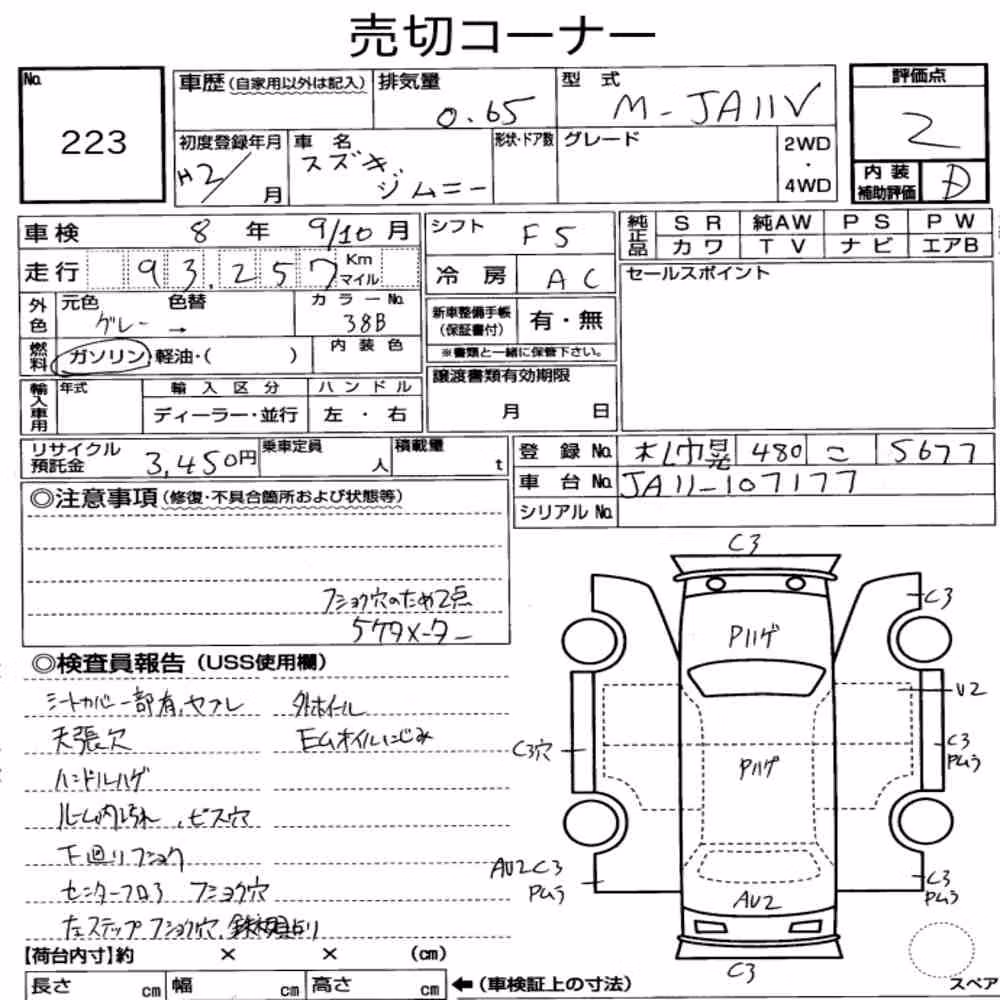 売切コーナー
No. 223
車歴(自家用以外は記入)
排気量 0.65
型式 M-JA11V
評価点 2
初度登録年月 H2/ 月
車名 スズキ ジムニー
形状・ドア数
グレード
2WD・4WD
内装補助評価 D
車検 8年 9/10月
シフト F5
純正品 SR 純AW PS PW
カワ TV ナビ エアB
走行 93,257 Km マイル
冷房 AC
セールスポイント
外色 元色 グレー → 色替
カラーNo. 38B
新車整備手帳(保証書付) 有・無
※書類と一緒に保管下さい。
燃料 ガソリン・軽油・( )
内装色
輸入車用 年式 輸入区分 ハンドル
ディーラー・並行 左・右
譲渡書類有効期限
月 日
リサイクル預託金 3,450円
乗車定員 人
積載量 t
登録No. 札幌 480 こ 5677
車台No. JA11-107177
シリアルNo.
◎注意事項(修復・不具合箇所および状態等)
フショク穴のため2点
5ケタメーター
◎検査員報告(USS使用欄)
シートカバー一部有、ヤブレ 外ホイール
天張穴 E/Mオイルにじみ
ハンドルハゲ
ルーム内汚れ、ビス穴
下回りフショク
センターフロア フショク穴
左ステップフショク穴、
【荷台内寸】約 × × (cm)
長さ cm 幅 cm 高さ cm ←(車検証上の寸法)
C3
C3
Pハゲ
U2
C3穴
C3
Pムラ
Pハゲ
AU2C3
Pムラ
C3
Pムラ
AU2
C3
スペア